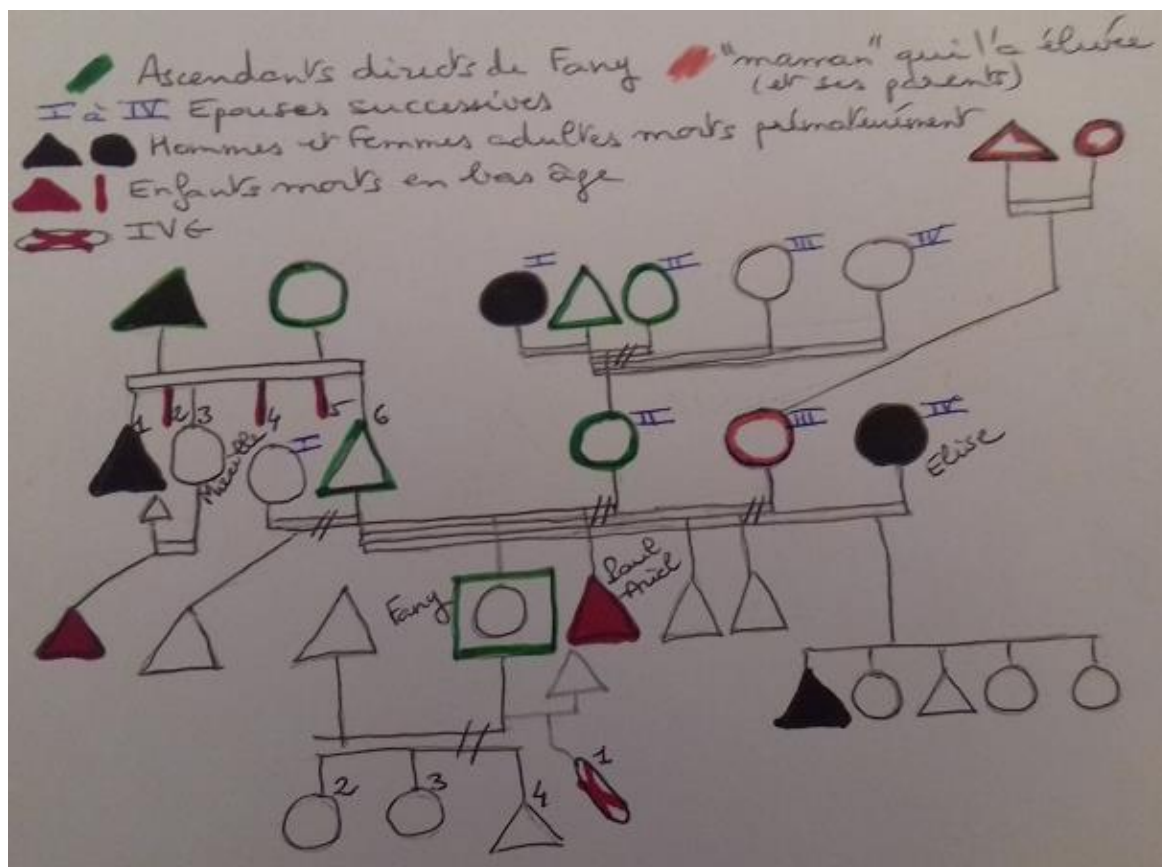 Ascendants directs de Fany "maman" qui l'a élevée
(et ses parents)
I à IV Epouses successives
Hommes et femmes adultes morts prématurément
Enfants morts en bas âge
IVG
I
II
III
IV
1
2
3
4
5
6
Mireille
I
II
III
IV
Elise
Fany
Paul
Ariel
1
2
3
4